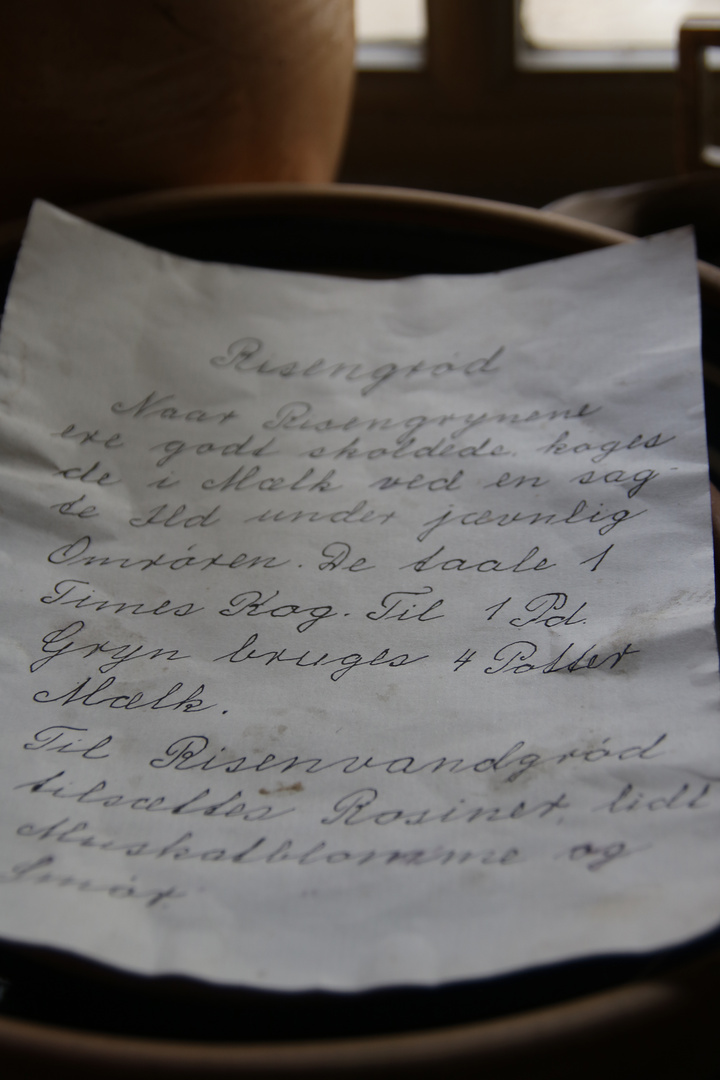 Risengrød
Naar Risengrynene
ere godt skoldede, koges
de i Mælk ved en sag-
te Ild under jævnlig
Omrøren. De taale 1
Times Kog. Til 1 Pd.
Gryn bruges 4 Potter
Mælk.
Til Risenvandgrød
tilsættes Rosiner, lidt
Muskatblomme og
Smør